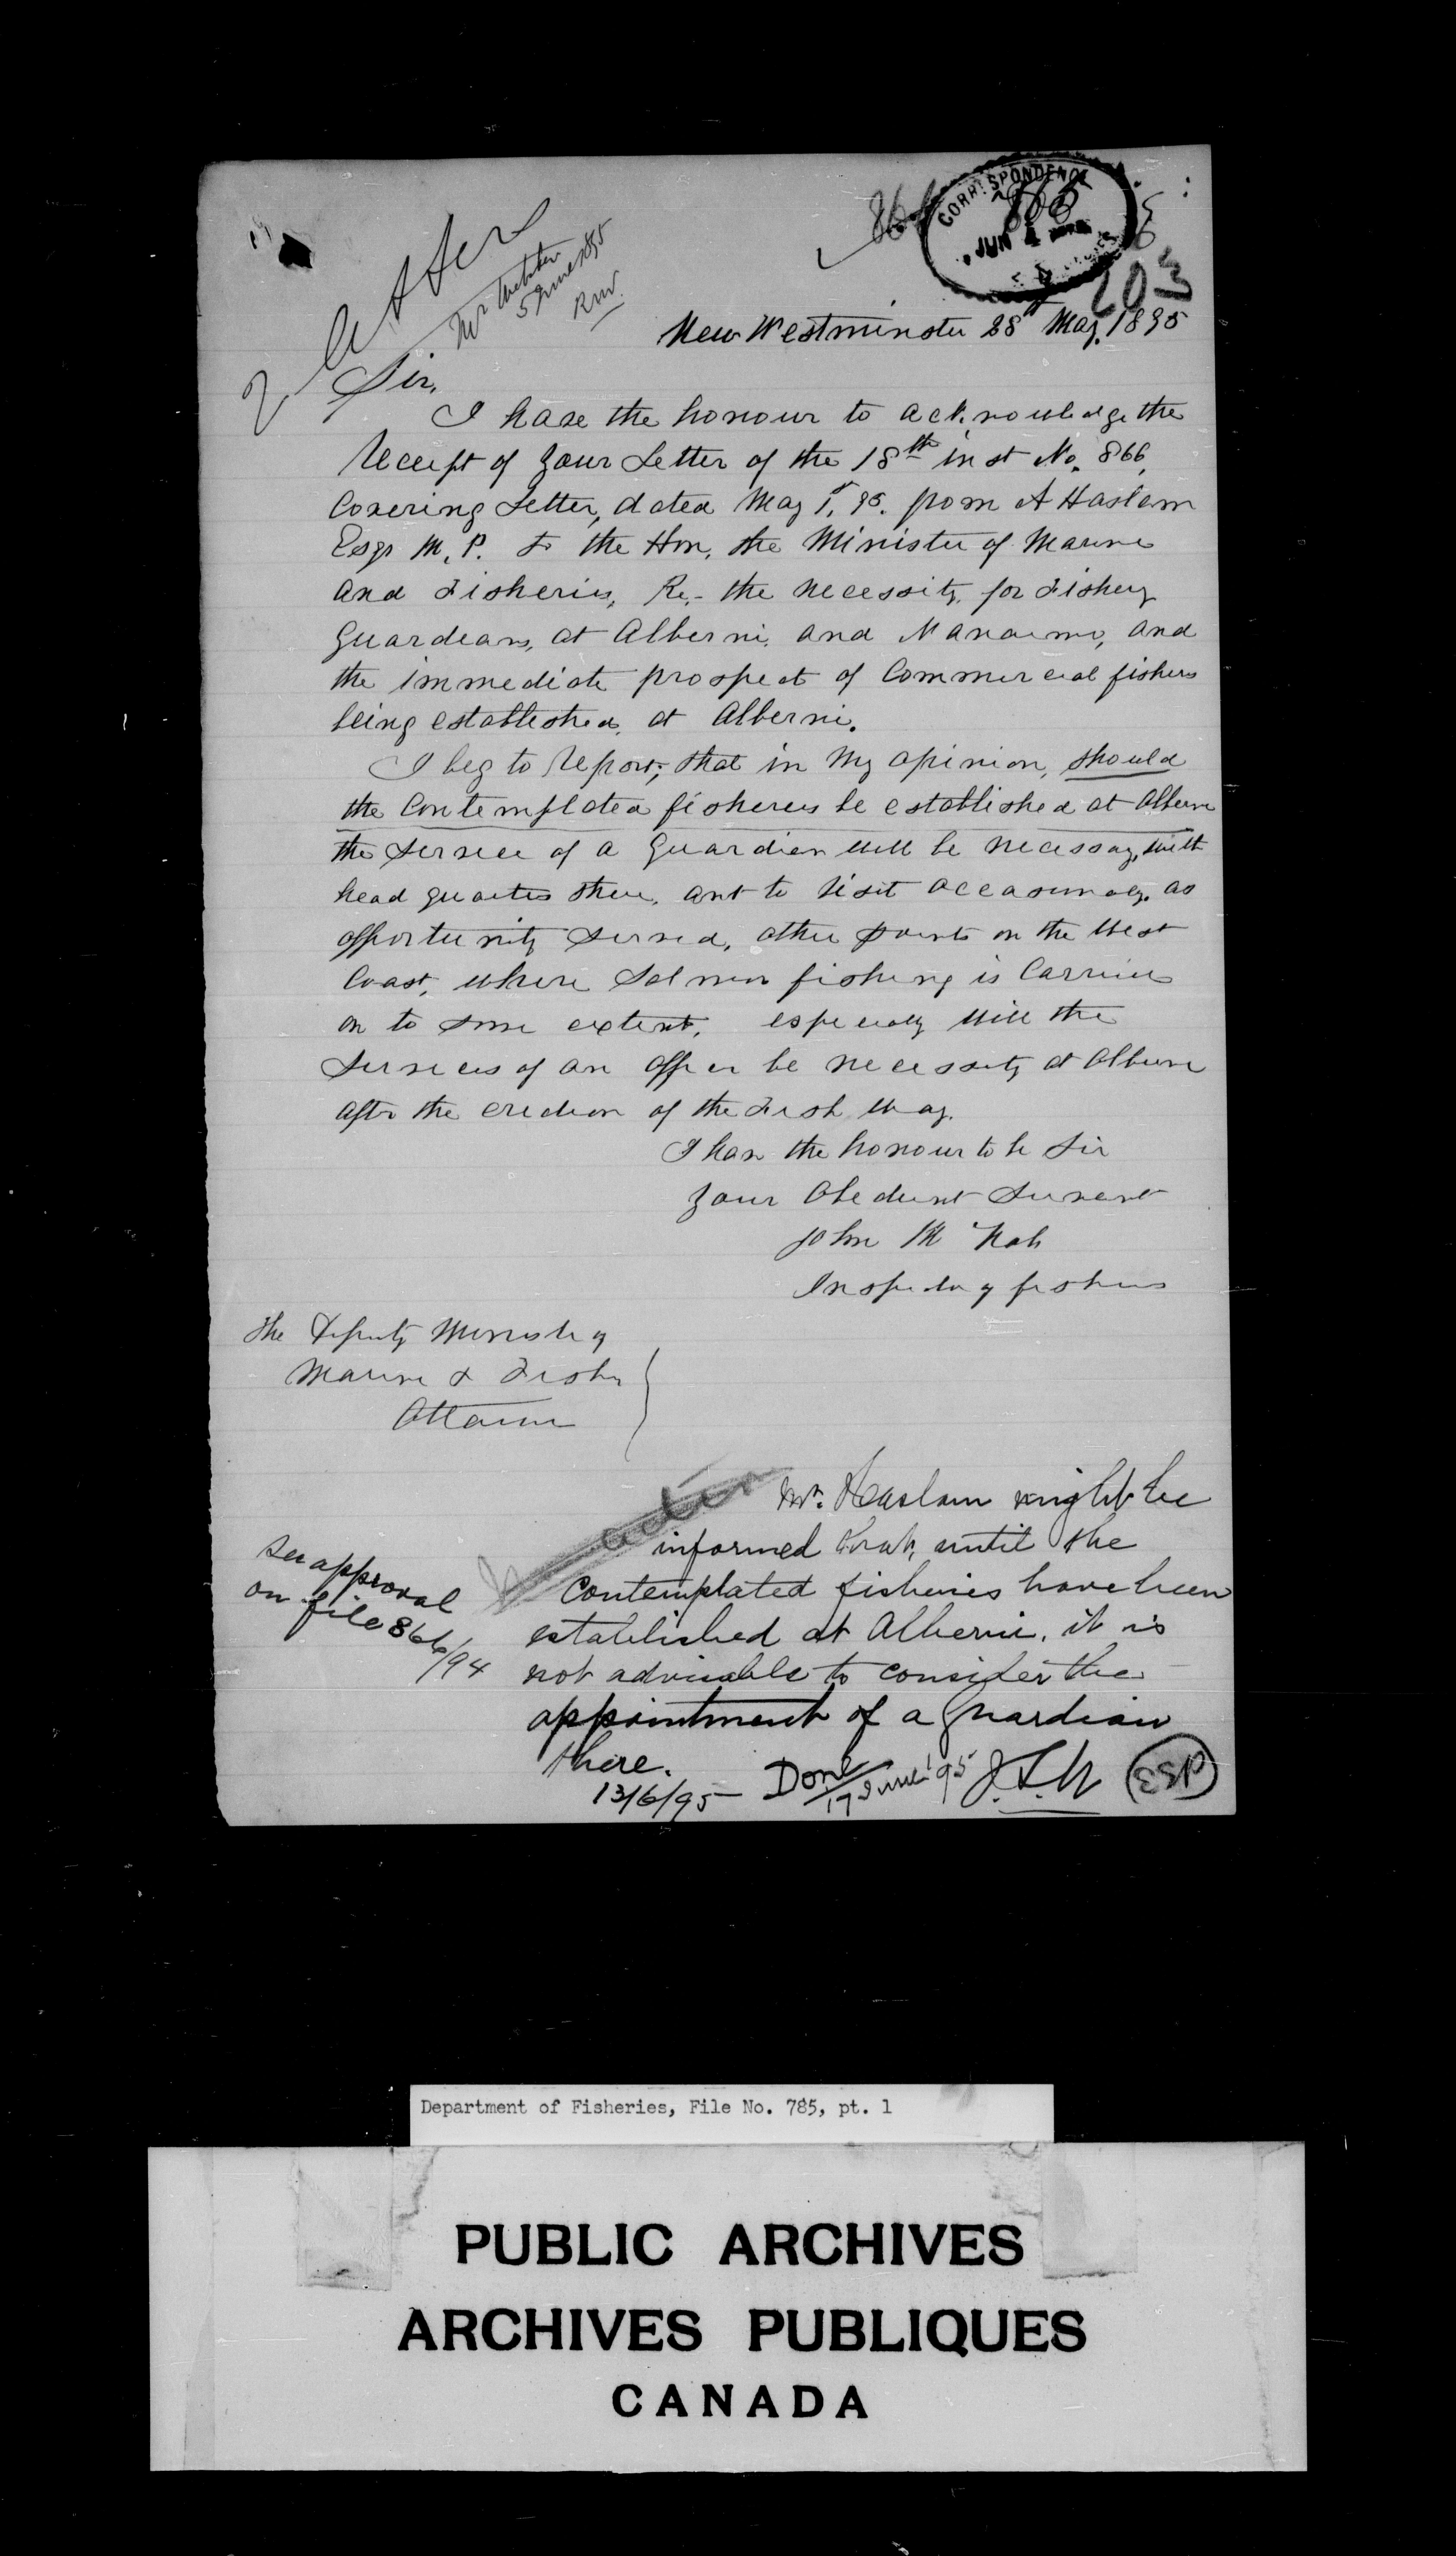 CORRESPONDENCE
866
JUN 4
203
Mr Webster
5 June 1895
RW.
New Westminster 28th May, 1895
Sir,
I have the honour to acknowledge the
receipt of your Letter of the 18th inst No. 866,
Covering Letter, dated May 1st, 95. from A Haslam
Esqr M.P. to the Hon, the Minister of Marine
and Fisheries, Re,- the necessity for Fishery
Guardians, at Alberni, and Nanaimo, and
the immediate prospect of Commercial fisheries
being established, at Alberni.
I beg to report; that in my opinion, should
the Contemplated fisheries be established at Alberni
the Service of a Guardian will be necessary, with
head quarters there, and to visit occasionaly, as
opportunity served, other points on the West
Coast, where Salmon fishing is Carried
on to some extent, especially will the
Services of an officer be necessity at Alberni
after the erection of the Fish way.
I have the honour to be Sir
Your Obedient Servant
John McNab
Inspector of fisheries
The Deputy Minister of
Marine & Fisheries
Ottawa
Mr. Haslam might be
informed that, until the
Contemplated fisheries have been
established at Alberni, it is
not advisable to consider the
appointment of a Guardian
there.
13/6/95
See approval
on file 866/94
Done
17 June '95
Department of Fisheries, File No. 785, pt. 1
PUBLIC ARCHIVES
ARCHIVES PUBLIQUES
CANADA